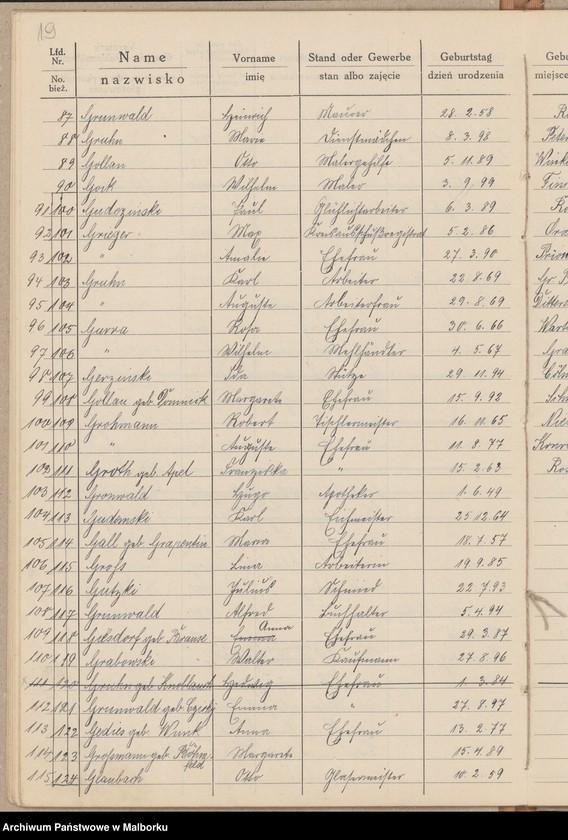 19
Lfd. Nr. Name Vorname Stand oder Gewerbe Geburtstag
No. bież. nazwisko imię stan albo zajęcie dzień urodzenia
87 Grunwald Heinrich Maurer 28. 2. 58
88 Gruhn Marie Dienstmädchen 8. 3. 98
89 Gollan Otto Malergehilfe 5. 11. 89
90 Gock Wilhelm Maler 3. 9. 99
91 100 Paul 6. 3. 89
92 101 Max 5. 2. 86
93 102 " Amalie Ehefrau 27. 3. 90
94 103 Gruhn Karl Arbeiter 22. 8. 69
95 104 " Auguste Arbeiterfrau 29. 8. 69
96 105 Gurra Rosa Ehefrau 30. 6. 66
97 106 " Wilhelm Mehlhändler 4. 5. 67
98 107 Gerzinski Ida Stütze 29. 11. 94
99 108 Gollan geb. Margarete Ehefrau 15. 9. 92
100 109 Grohmann Robert Tischlermeister 16. 10. 65
101 110 " Auguste Ehefrau 11. 8. 77
102 111 Groth geb. Apel Franziska " 15. 2. 63
103 112 Gronwald Hugo Apotheker 1. 6. 49
104 113 Gudowski Karl Eichmeister 25. 12. 64
105 114 Gall geb. Grapentin Maria Ehefrau 18. 7. 57
106 115 Groß Lina Arbeiterin 19. 9. 85
107 116 Gutzki Julius Schmied 22. 7. 93
108 117 Grunwald Alfred Buchhalter 5. 4. 94
109 118 geb. Krause Emma Anna Ehefrau 29. 3. 87
110 119 Grabowski Walter Kaufmann 27. 8. 96
111 120 Gruhn geb. Hedwig Ehefrau 1. 3. 84
112 121 Grunwald geb. Emma " 27. 8. 97
113 122 Gedies geb. Wunk Anna Ehefrau 13. 2. 77
114 123 Großmann geb. Margarete 15. 4. 89
115 124 Glaubach Otto Glasermeister 10. 2. 59
Archiwum Państwowe w Malborku